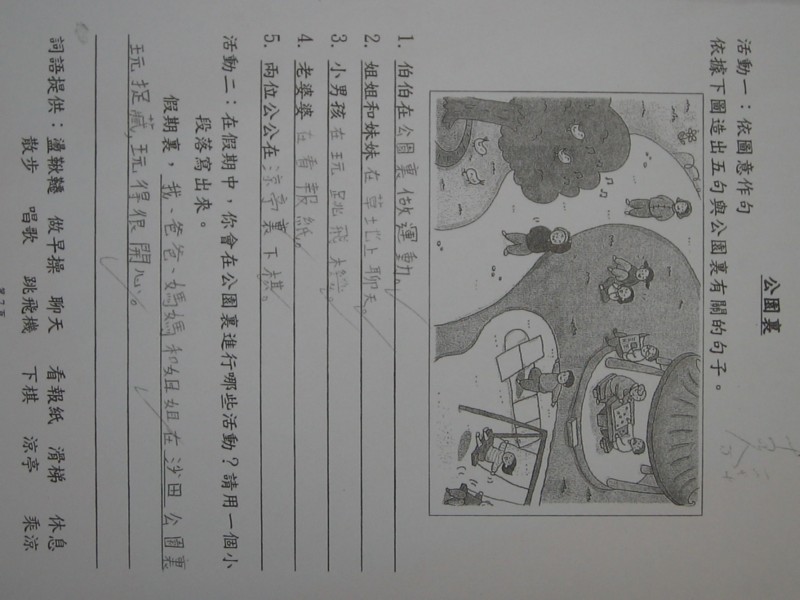 公園裏
活動一：依圖意作句
依據下圖造出五句與公園裏有關的句子。
1. 伯伯在公園裏做運動。
2. 姐姐和妹妹在草地上聊天。
3. 小男孩在玩跳飛機。
4. 老婆婆在看報紙。
5. 兩位公公在涼亭裏下棋。
活動二：在假期中，你會在公園裏進行哪些活動？請用一個小
段落寫出來。
假期裏，我、爸爸、媽媽和姐姐在沙田公園裏
玩捉藏，玩得很開心。
詞語提供：盪鞦韆 做早操 聊天 看報紙 滑梯 休息
散步 唱歌 跳飛機 下棋 涼亭 乘涼